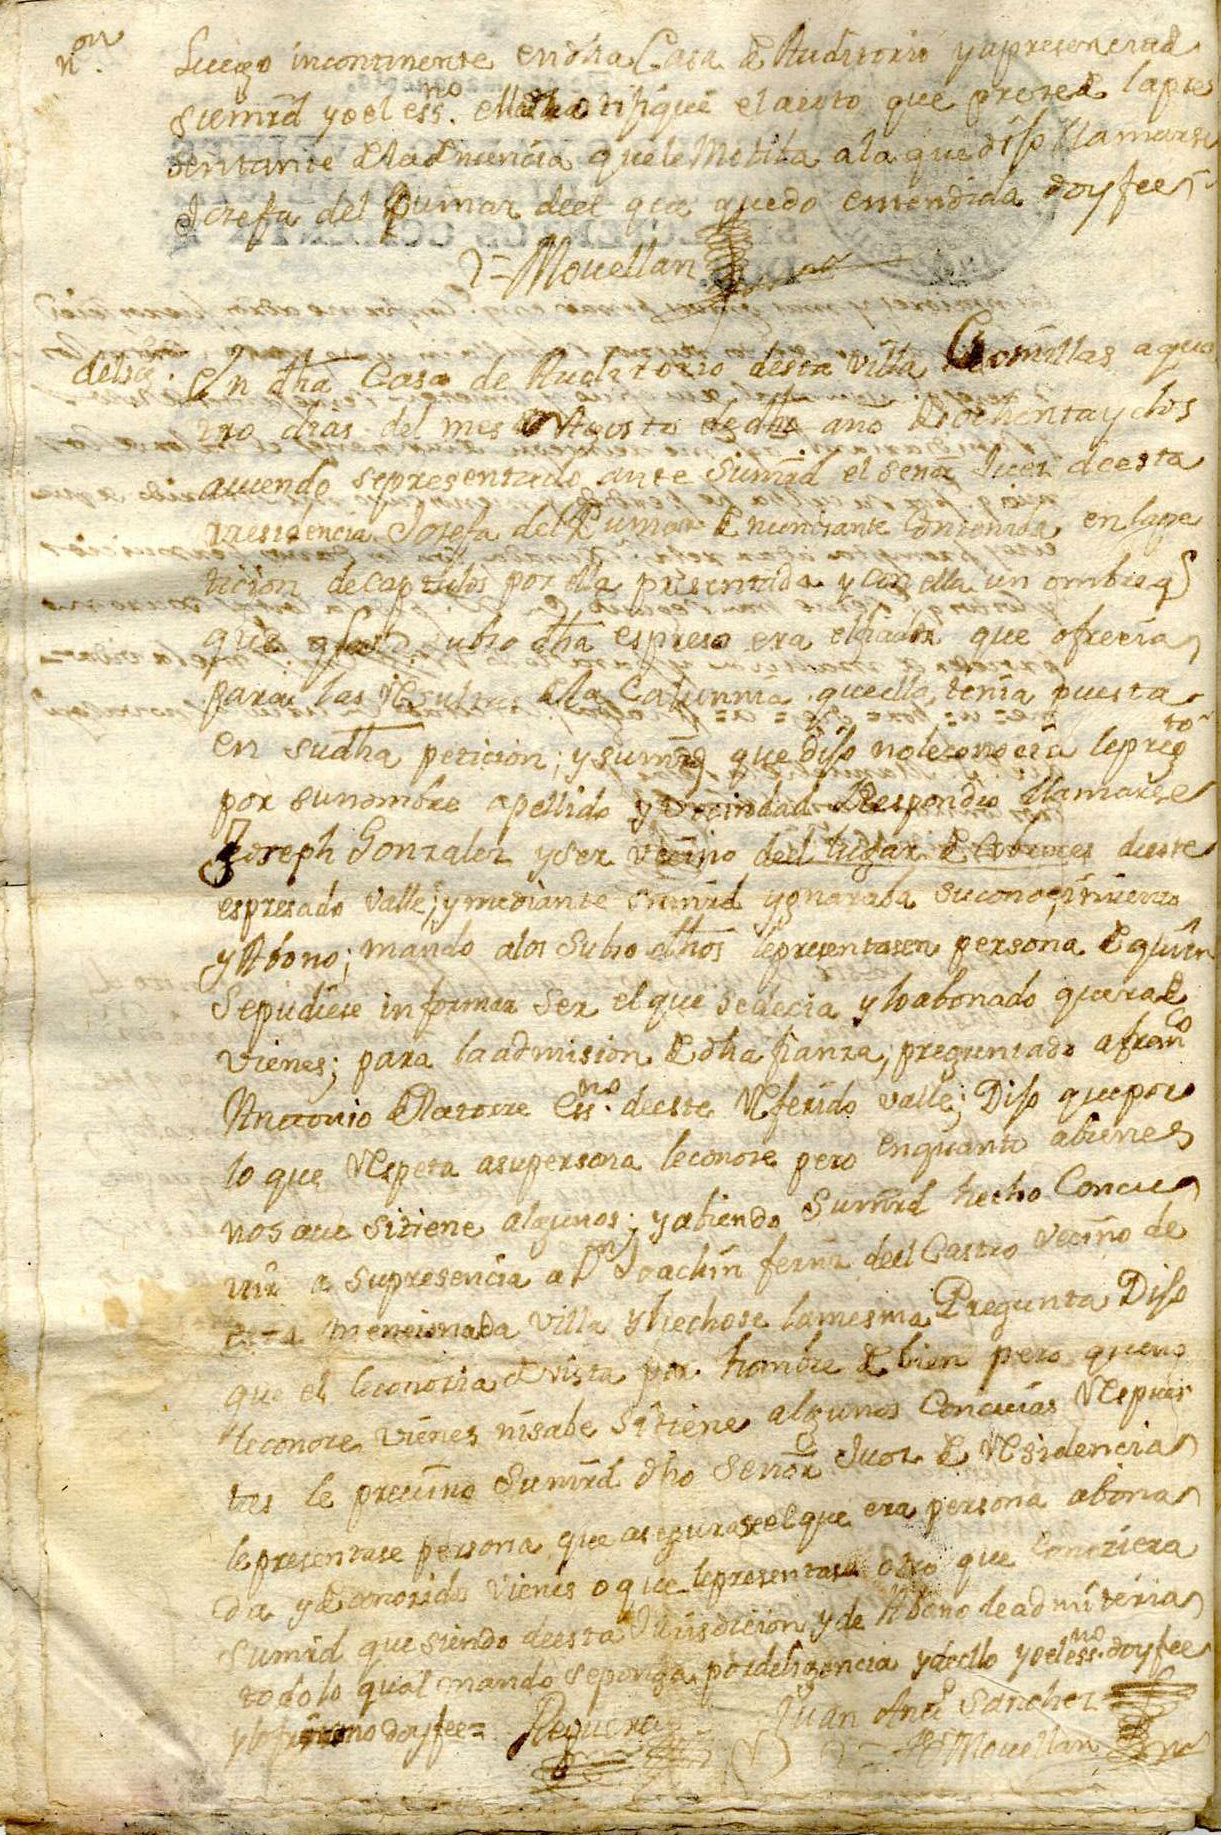 non
Luego incontinente en dha Casa de Auditorio y a presencia de
su mrd yo el essno. notifiqué el auto que prozede la pre
sentante de la denuncia que le Motiba a la que dijo llamarse
Josefa del Pumar de el que quedo entendida doy fee
Mouellan
delxa.
En dha Casa de Auditorio desta Villa Comillas a qua
tro dias del mes de Agosto de dho año de ochenta y dos
auiendo se presentado ante su mrd el señor Juez de esta
rresidencia Josefa del Pumar denunciante contenida en la pe
ticion de capitulos por ella presentada y con ella un ombre q
que la suso dha espreso era el fiador que ofrecia
para las Resultas de la Calunnia que ella tenia puesta
en su dha peticion; y su mrd que dijo no le conocia le pregto
por su nombre apellido y Vecindad Respondio llamarse
Joseph Gonzalez y ser vecino del lugar de deste
espresado Valle; y mediante su mrd ygnoraba su conocimiento
y Abono; mando a los suso dhos le presentasen persona de quien
se pudiese informar ser el que se decia y lo abonado que era de
vienes; para la admision de dha fianza; preguntado a franco
Antonio de Latorre Essno. de este Referido valle; Dijo que por
lo que Respeta a su persona le conoze pero en quanto a bienes
no saue si tiene algunos; y abiendo su mrd hecho Concu
rrir a su presencia a Dn Joachin fernz de el Castro vecino de
esta mencionada villa y hechose la mesma Pregunta Dijo
que el le conocia de vista por hombre de bien pero que no
le conoze vienes ni sabe si tiene algunos Con cuias Respues
tas le preuino su mrd dho Señor Juez de Residencia
le presentase persona que asegurase el que era persona abona
da y de conozidos vienes o que le presentase otro que conoziera
su mrd que siendo de esta Jurisdicion y de Abono le admiteria
todo lo qual mando se ponga por deligencia y de ello yo el essno. doy fee
y lo firmo doy fee = Requera Juan Anto Sanchez
Mouellan